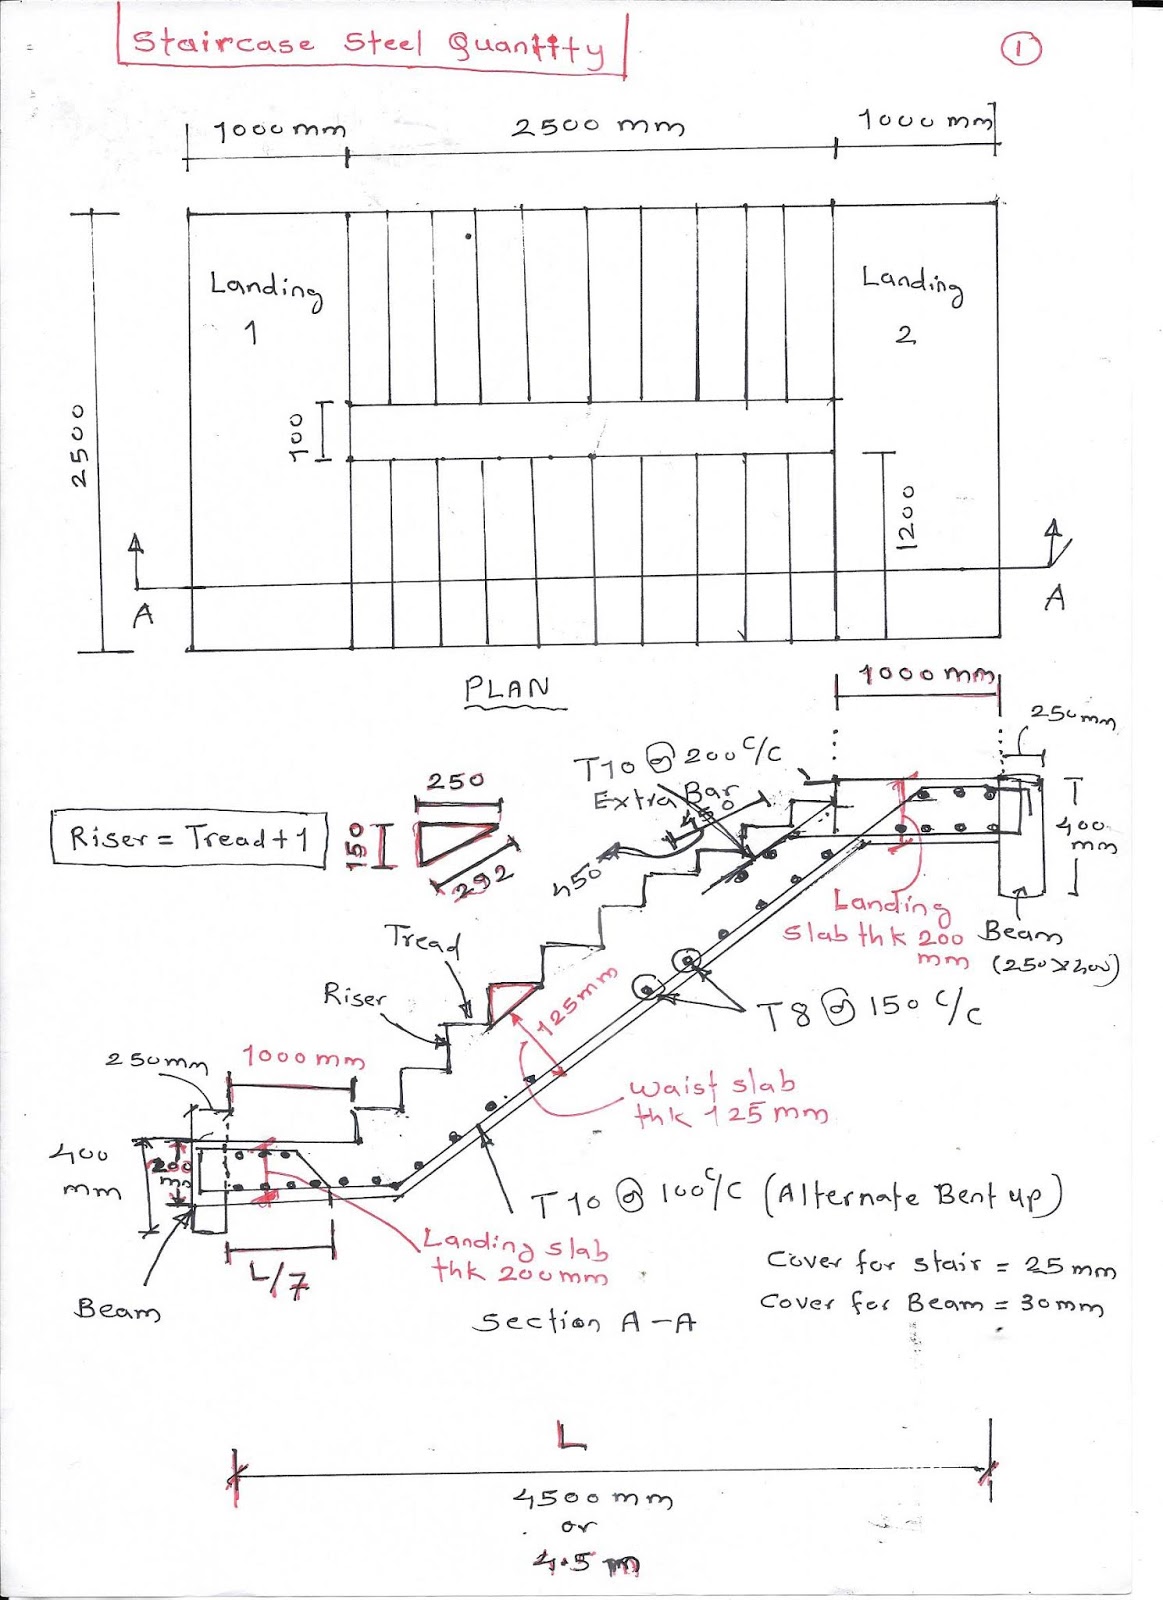 Staircase Steel Quantity
1
1000mm
2500 mm
1000mm
Landing
1
Landing
2
2500
100
1200
A
A
PLAN
1000mm
250mm
T10 @ 200 c/c
Extra Bar
450
450
250
150
292
Riser = Tread+1
400
mm
Landing
slab thk 200
mm
Beam
(250x400)
Tread
Riser
125mm
T8 @ 150 c/c
250mm
1000mm
waist slab
thk 125mm
400
mm
200
mm
T10 @ 100c/c (Alternate Bent up)
Landing slab
thk 200mm
L/7
Beam
Cover for stair = 25mm
Cover for Beam = 30mm
Section A-A
L
4500mm
or
4.5 m